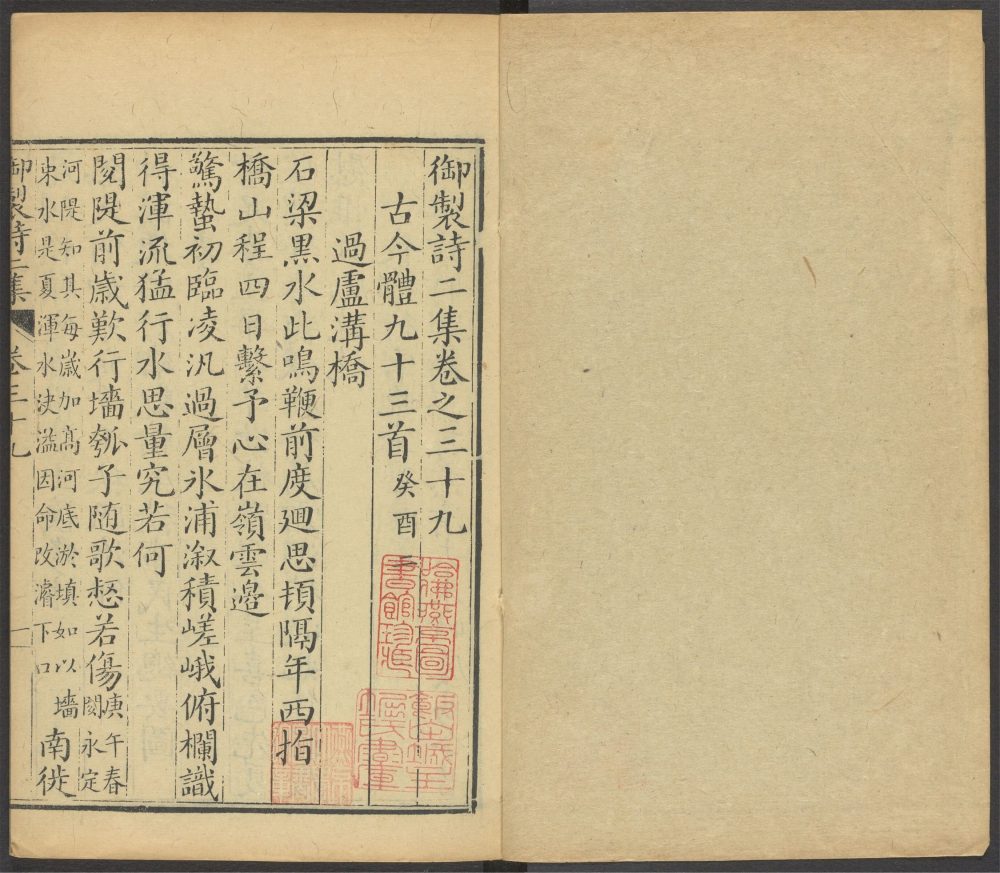 御製詩二集卷之三十九
古今體九十三首癸酉二
過盧溝橋
石梁黑水此鳴鞭前度廻思頓隔年西指
橋山程四日繫予心在嶺雲邊
驚蟄初臨凌汎過層氷浦溆積嵯峨俯欄識
得渾流猛行水思量究若何
閱隄前歲歎行墻瓠子随歌愁若傷庚午春閱永定
河隄知其每歲加高河底淤填如以墻
束水是夏渾水決溢因命改濬下口南徙
御製詩二集 卷三十九 一
哈佛燕京圖書館珍藏